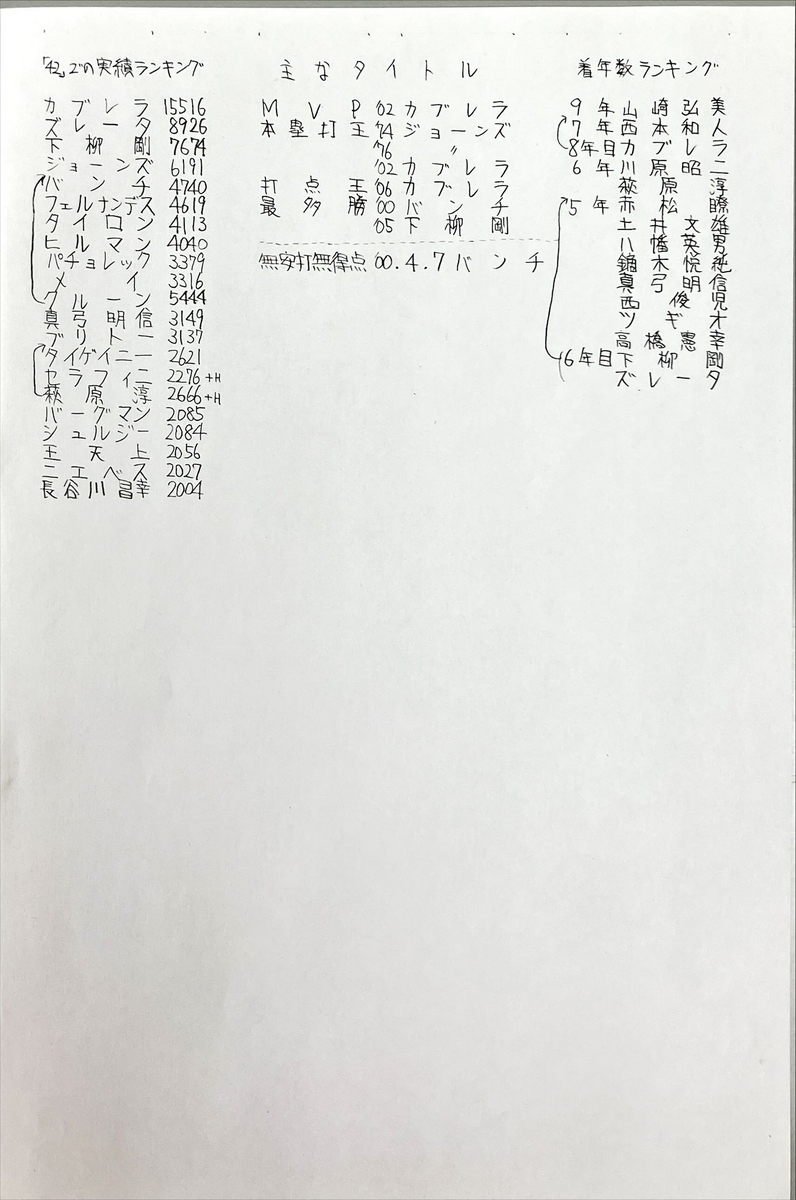 「42」での実績ランキング
カブレラ 15516
ズレータ 8926
下柳剛 7674
ジョーンズ 6191
バンチ 4740
フェルナンデス 4619
タイロン 4113
ヒルマン 4040
パチョレック 3379
メイ 3316
グルーン 5444
真弓明信 3149
ブリトー 3137
タイゲイニー 2621
セラフィニ 2276+H
萩原淳 2666+H
バーグマン 2085
シュルジー 2084
王天上 2056
ニエベス 2027
長谷川昌幸 2004
主なタイトル
MVP '02 カブレラ
本塁打王 '74 ジョーンズ
'76 〃
'02 カブレラ
打点王 '06 カブレラ
最多勝 '00 バンチ
'05 下柳剛
無安打無得点 '00.4.7 バンチ
着年数ランキング
9年 山崎弘美
7年 西本和人
8年目 カブレラ
6年 川原昭二
萩原淳
5年 赤松瞭
土井文雄
八幡英男
鏑木悦純
真弓明信
西俊児
ツギオ
高橋憲幸
6年目 下柳剛
ズレータ